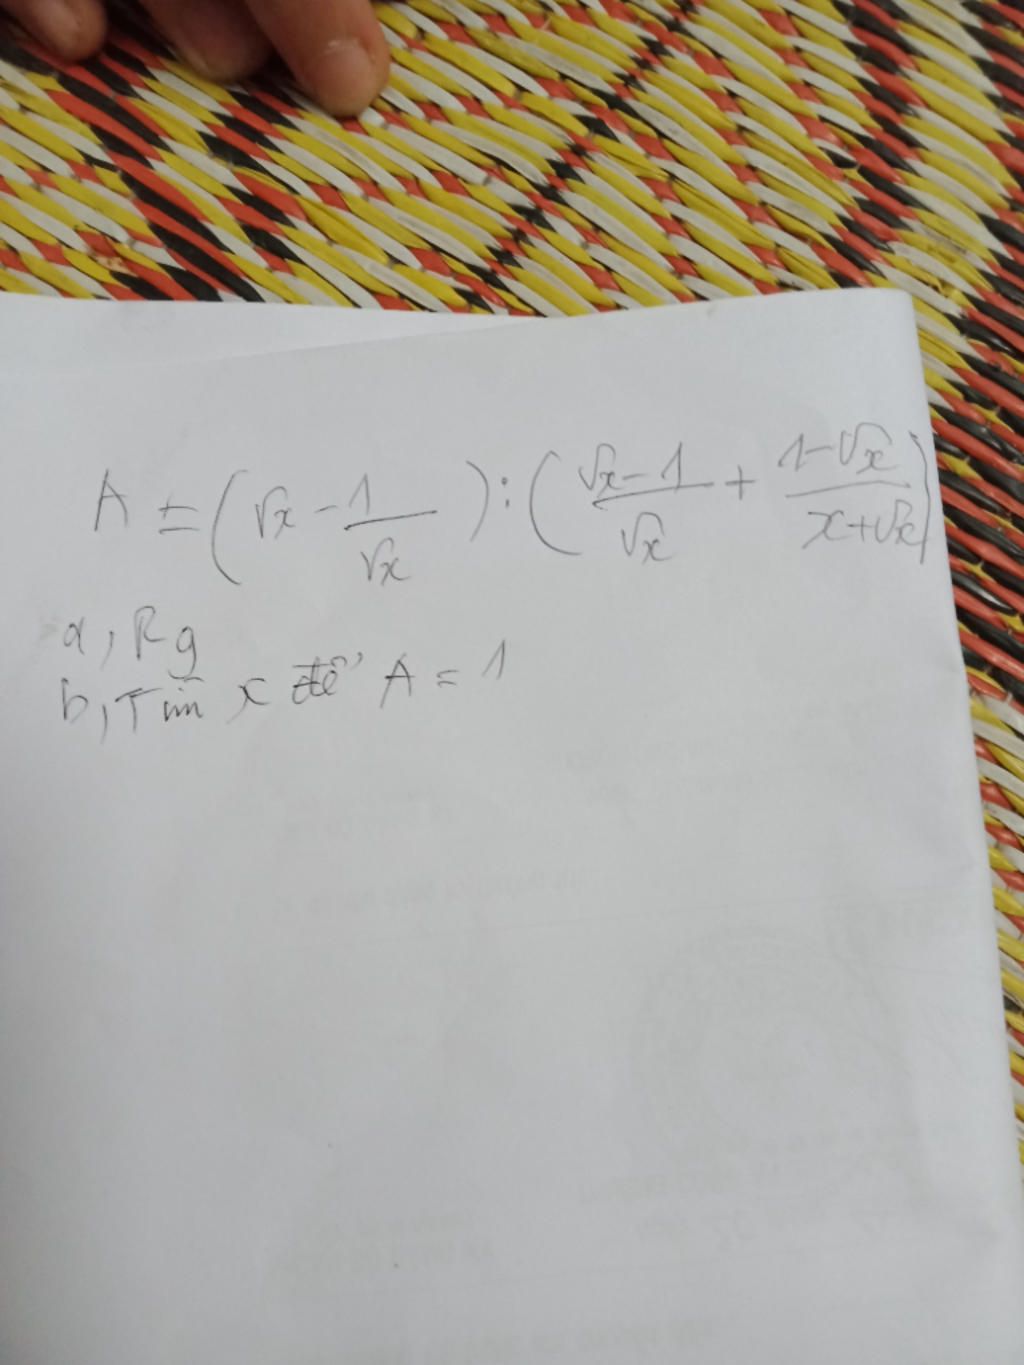 A = (√x - 1/√x) : (√x-1/√x + 1-√x/x+√x)
a, Rg
b, Tìm x để A = 1